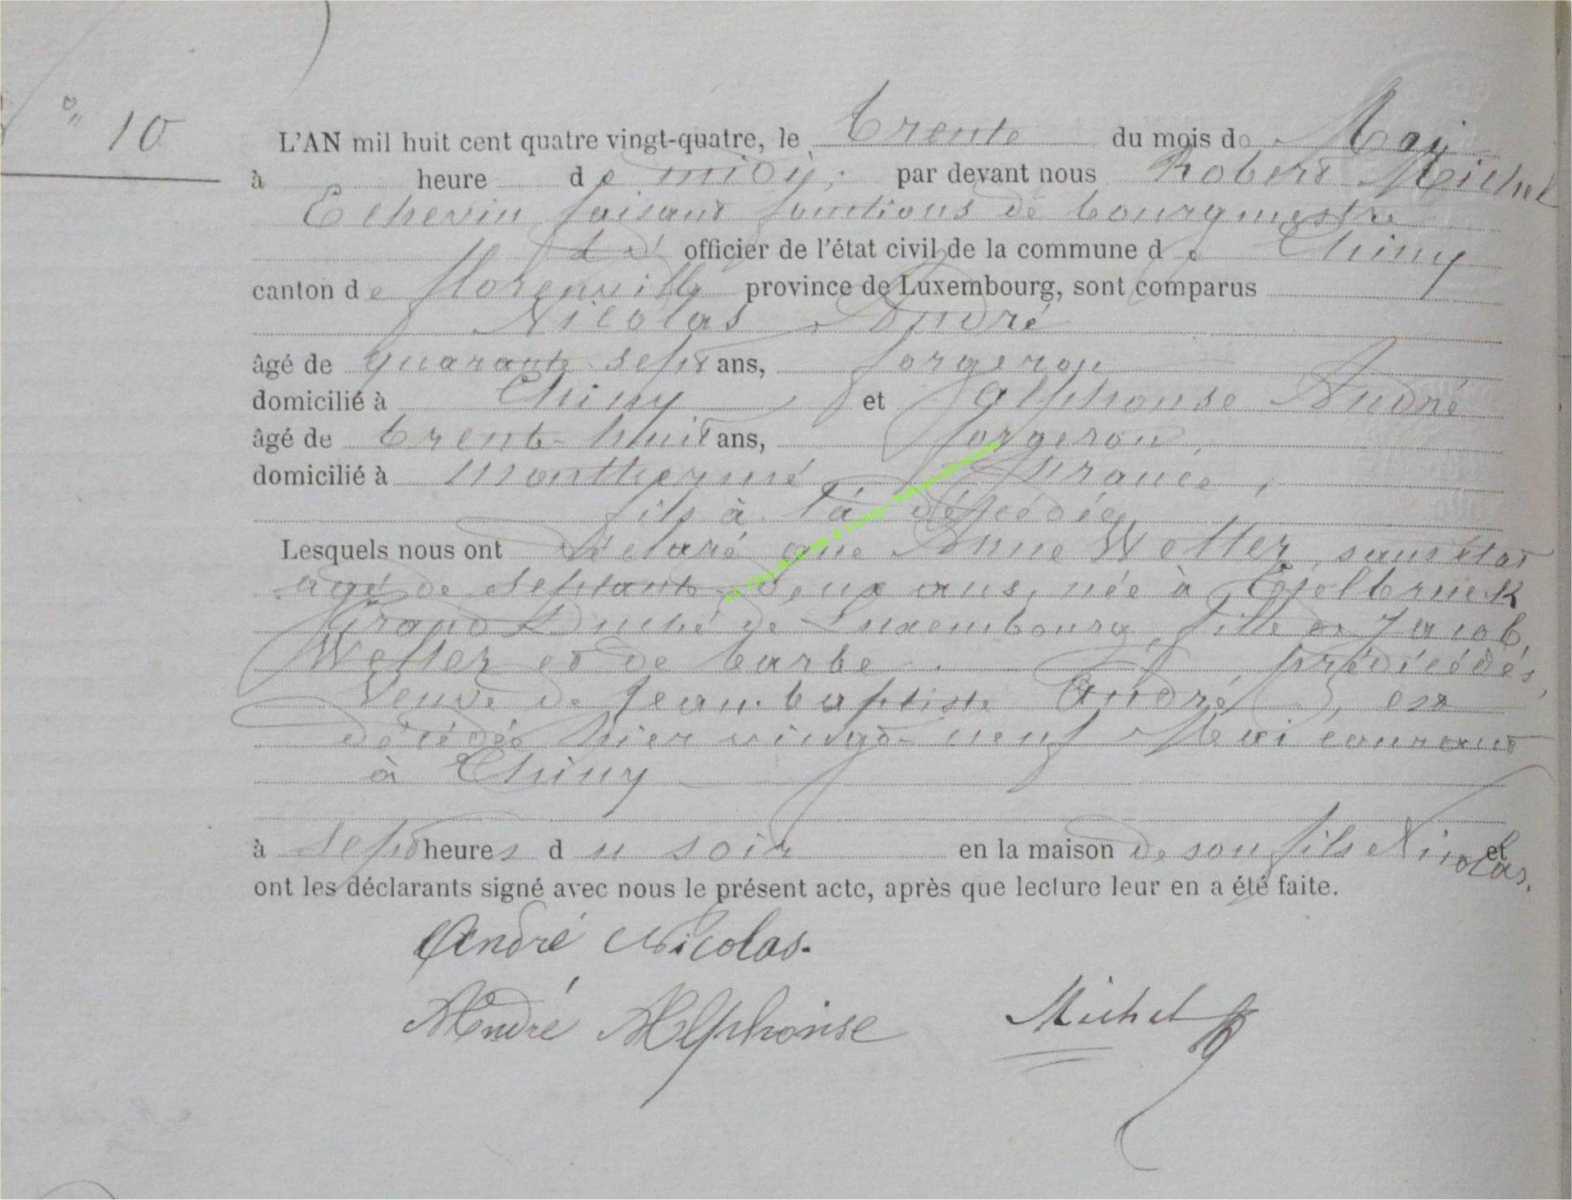 N° 10
L'AN mil huit cent quatre vingt-quatre, le trente du mois de Mai
à heure de midi, par devant nous Robert Michel
Echevin faisant fonctions de bourgmestre
officier de l'état civil de la commune de Chiny
canton de florenville province de Luxembourg, sont comparus
Nicolas André
âgé de quarante sept ans, forgeron
domicilié à Chiny et Alphonse André
âgé de trente-huit ans, forgeron
domicilié à Monthermé france,
fils à la décédée
Lesquels nous ont déclaré que Anne Welter, sans état
âgé de septante-deux ans, née à Ettelbruck
Grand Duché de Luxembourg, fille de Jacob
Welter et de barbe prédécédés,
Veuve de Jean baptiste André, est
décédée hier vingt-neuf Mai courant
à Chiny
à sept heures du soir en la maison de son fils Nicolas. et
ont les déclarants signé avec nous le présent acte, après que lecture leur en a été faite.
André Nicolas.
André Alphonse Michel